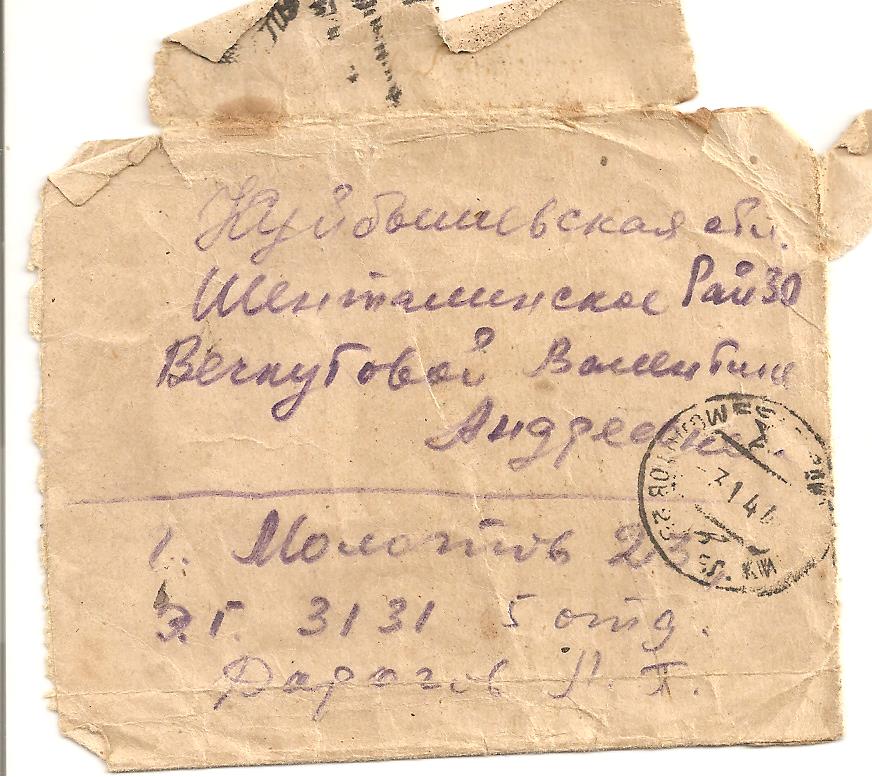 Куйбышевская обл.
Шенталинское РайЗО
Вечкутовой Валентине
Андреевне
г. Молотов 23,
э.г. 3131 5 отд.
П.